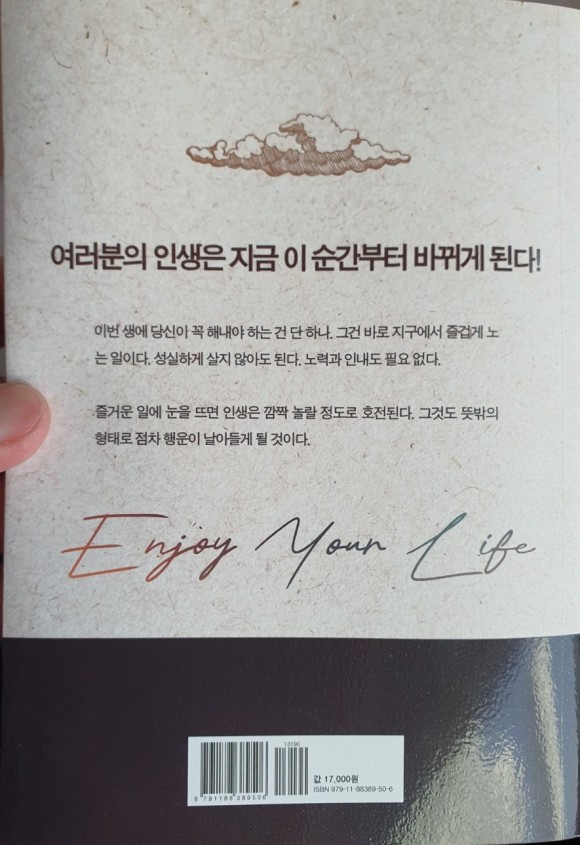 여러분의 인생은 지금 이 순간부터 바뀌게 된다!
이번 생에 당신이 꼭 해내야 하는 건 단 하나. 그건 바로 지구에서 즐겁게 노
는 일이다. 성실하게 살지 않아도 된다. 노력과 인내도 필요 없다.
즐거운 일에 눈을 뜨면 인생은 깜짝 놀랄 정도로 호전된다. 그것도 뜻밖의
형태로 점차 행운이 날아들게 될 것이다.
Enjoy Your Life
13190
값 17,000원
ISBN 979-11-88389-50-6
9 791188 389506